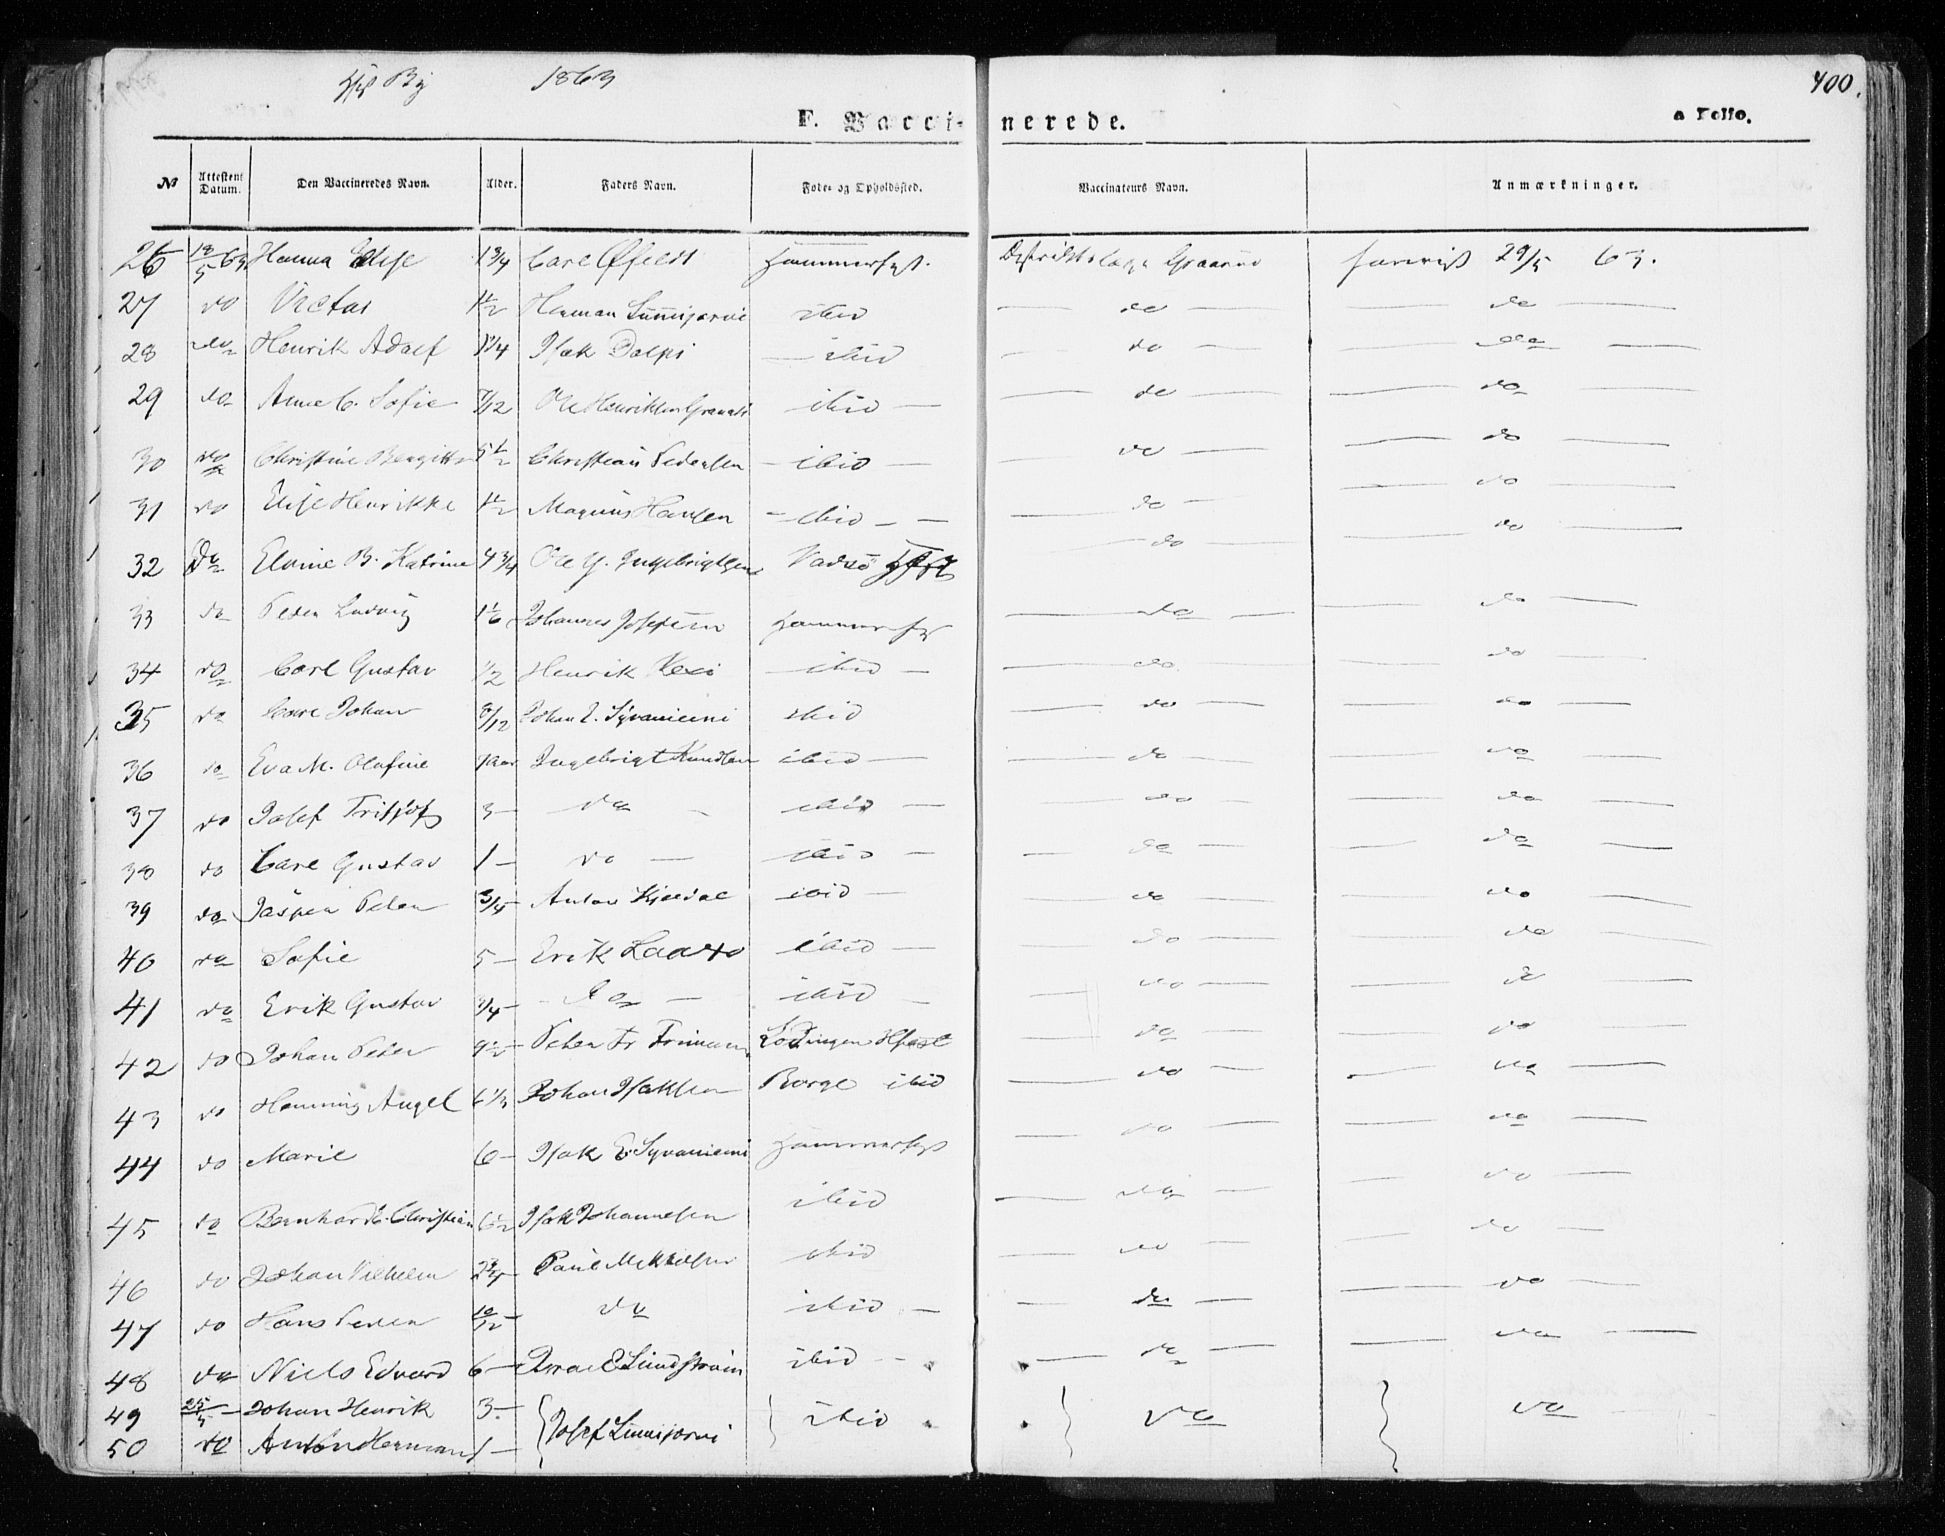 By 1863
400.
F. Vaccinerede.
a Folio.
№ Attestens Datum. Den Vaccineredes Navn. Alder. Faders Navn. Føde- og Opholdssted. Vaccinateurs Navn. Anmærkninger.
26 18/5 63 Hanna Elise 1 3/4 Carl Hammerfest. 29/5 63.
27 do Victor 1 1/2 Herman Lumijarvi ibid — do — — do —
28 do Henrik Adolf 1 1/4 Isak — ibid — do — — do —
29 do Anne C. Sofie 7/12 Ole Henriksen ibid — — do — — do —
30 do Christine Bergitte 5 1/2 Christian Pedersen — ibid — — do — — do —
31 do Elise Henrikke 1 1/2 Magnus Hansen — ibid — — — do — — do —
32 do Elvine B. Katrine 4 3/4 Ole Y. Ingebrigtsen Vadsö — do — — do —
33 do Peder Ludvig 1 1/6 Johannes Josefsen Hammerfest — do — — do —
34 do Carl Gustav 1/2 Henrik Kexi — ibid — — do — — do —
35 do Carl Johan 8/12 Johan E. Syvaniemi ibid — do — — do —
36 do Eva M. Olufine 9 aar Ingebrigt Knudsen ibid — — do — — do —
37 do Josef Fritjof 3 — do — ibid — — do — — do —
38 do Carl Gustav 1 — do — ibid — — do — — do —
39 do Jasper Peter 3/4 — Anton Kjeldal ibid — — do — — do —
40 do Sofie 5 — Erik Laaxo ibid — — do — — do —
41 do Erik Gustav 3/4 — do — ibid — — do — — do —
42 do Johan Peder 9 1/2 — Peter Fr. Frimann Lödingen — do — — do —
43 do Henning Angel 6 1/3 Johan Isaksen Borge ibid — do — — do —
44 do Marie 6 — Isak E. Syvaniemi Hammerfest — do — — do —
45 do Bernhard Christian 6 1/2 Isak Johannesen ibid — do — — do —
46 do Johan Vilhelm 2 3/4 — Paul Mikkelsen ibid — do — — do —
47 do Hans Peder 10/12 — do ibid — — do — — do —
48 do Niels Edvard 6 — Israel E. Lindstrøm ibid — — do — — do —
49 25/5 — Johan Henrik 3 — Josef Lumijarvi ibid do do —
50 do Anton Herman 1 —